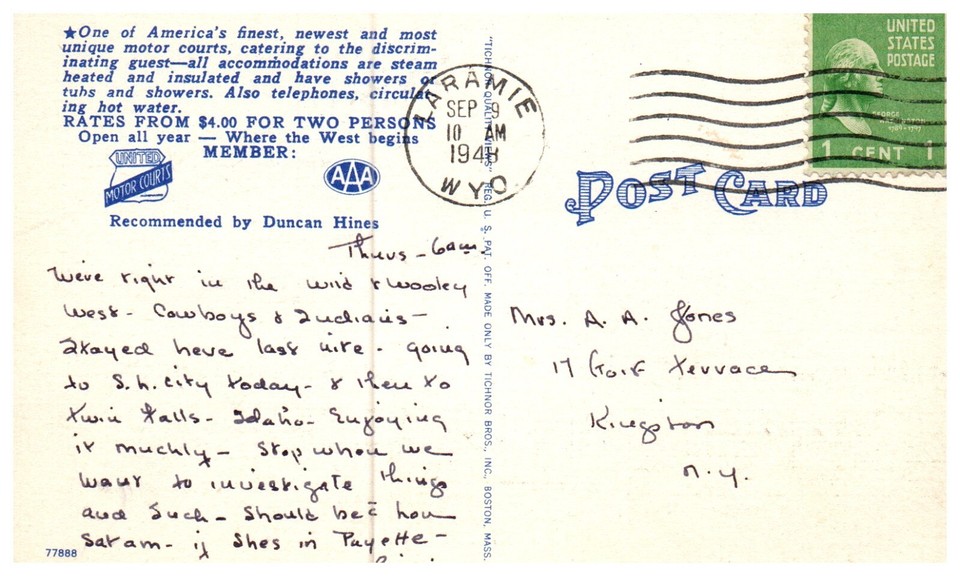 ★One of America's finest, newest and most
unique motor courts, catering to the discrim-
inating guest—all accommodations are steam
heated and insulated and have showers or
tubs and showers. Also telephones, circulat-
ing hot water.
RATES FROM $4.00 FOR TWO PERSONS
Open all year — Where the West begins
MEMBER:
UNITED
MOTOR COURTS
AAA
Recommended by Duncan Hines
Thurs - 6 am.
We're right in the wild & wooley
West - Cowboys & Indians -
Stayed here last nite - going
to S. h. city today - & then to
twin falls - Idaho - Enjoying
it muchly - Stop when we
want to investigate things
and such - Should be
if Shes in Payette -
77888
"TICHNOR QUALITY VIEWS" REG. U. S. PAT. OFF. MADE ONLY BY TICHNOR BROS., INC., BOSTON, MASS.
LARAMIE
SEP 9
10 AM
1948
WYO
UNITED
STATES
POSTAGE
GEORGE
WASHINGTON
1789-1797
1 CENT 1
POST CARD
Mrs. A. A. Jones
17 Golf Terrace
Kingston
N.Y.